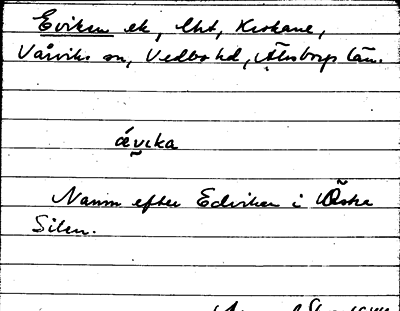 Eviken ek, lht, Krokane,
Vårviks sn, Vedbo hd, Älvsborgs län.
évika
Namn efter Edviken i Östra
Silen.